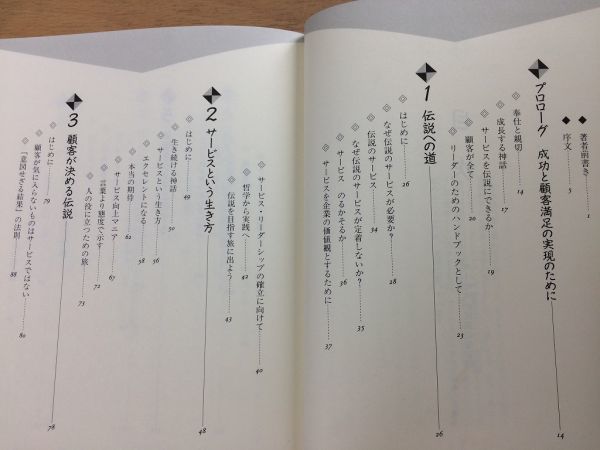 ◆ 著者前書き……1
◆ 序文……5
プロローグ 成功と顧客満足の実現のために 14
◇ 奉仕と親切……14
◇ 成長する神話……17
◇ サービスを伝説にできるか……19
◇ 顧客が全て……20
◇ リーダーのためのハンドブックとして……23
1 伝説への道 26
◇ はじめに……26
◇ なぜ伝説のサービスが必要か?……28
◇ 伝説のサービス……34
◇ なぜ伝説のサービスが定着しないか?……35
◇ サービス のるかそるか……36
◇ サービスを企業の価値観とするために……37
◇ サービス・リーダーシップの確立に向けて……40
◇ 哲学から実践へ……42
◇ 伝説を目指す旅に出よう……43
2 サービスという生き方 48
◇ はじめに……49
◇ 生き続ける神話……50
◇ サービスという生き方……56
◇ エクセレントになる……58
◇ 本当の期待……62
◇ サービス向上マニア……67
◇ 言葉より態度で示す……72
◇ 人の役に立つための旅……73
3 顧客が決める伝説 78
◇ はじめに……79
◇ 顧客が気に入らないものはサービスではない……80
◇ 「意図せざる結果」の法則……88